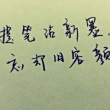 提笔沾新墨
忘却旧容颜